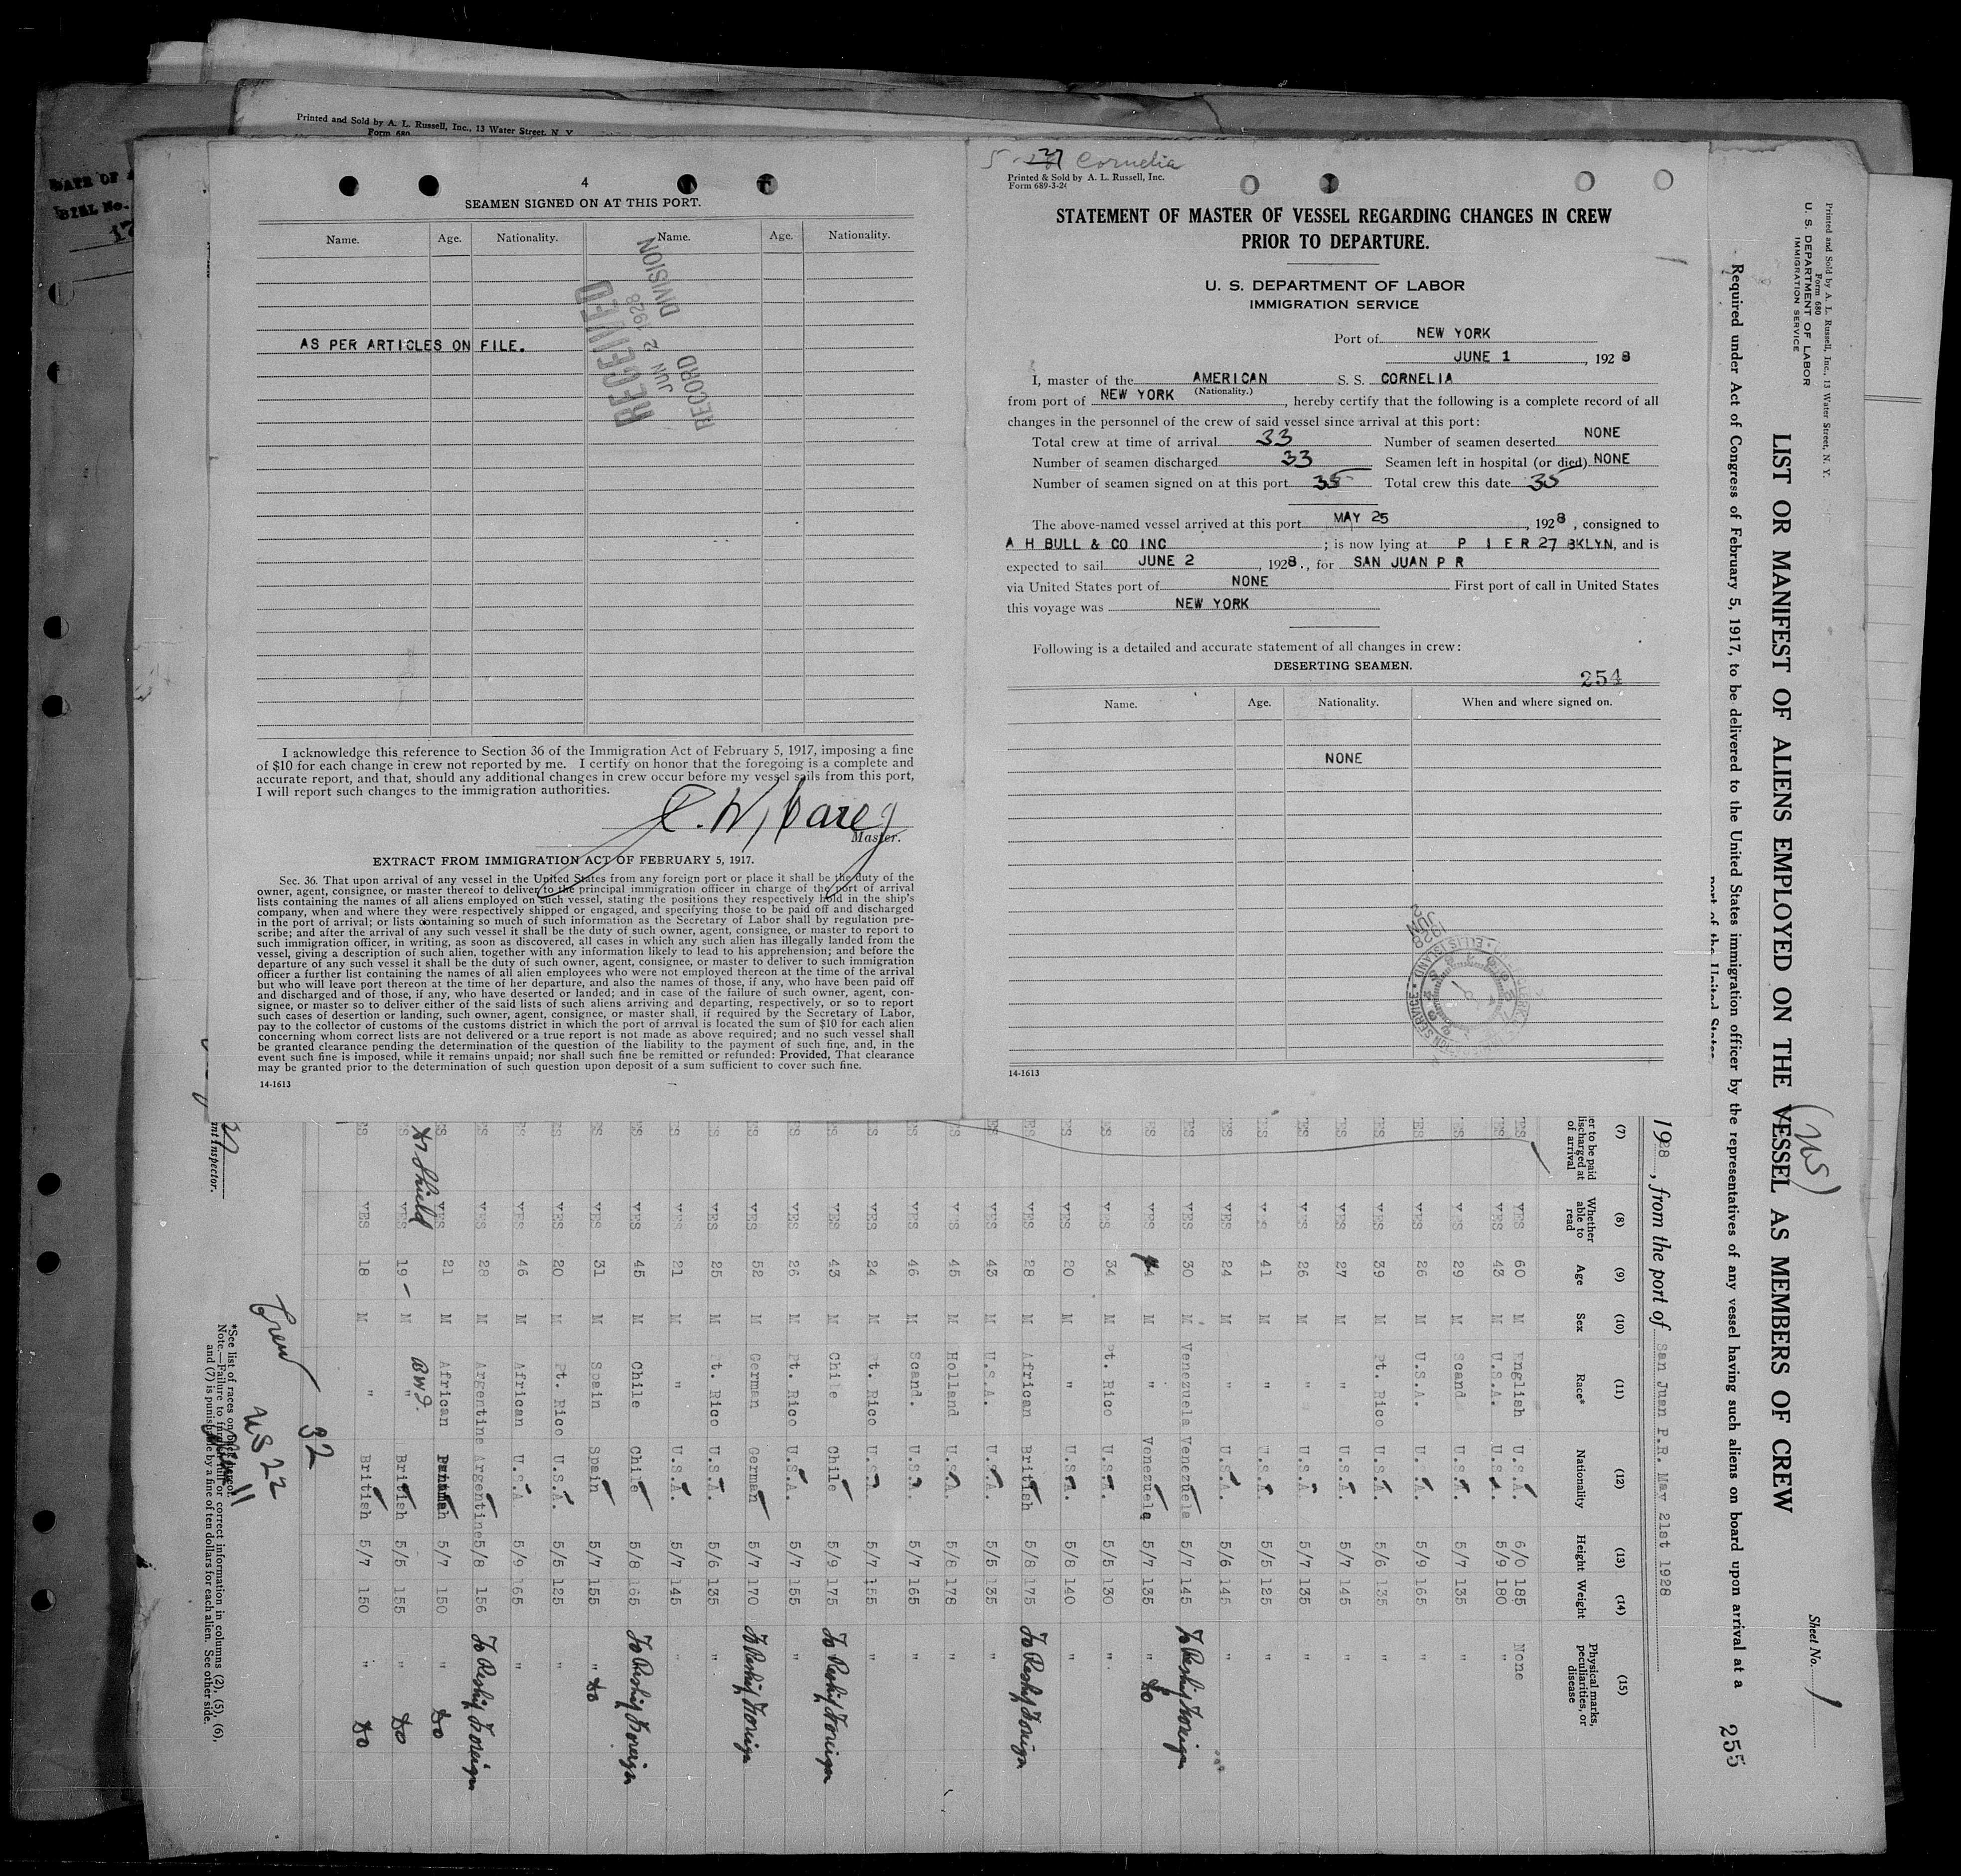 Printed and Sold by A. L. Russell, Inc., 13 Water Street, N. Y.
Form 680
4
SEAMEN SIGNED ON AT THIS PORT.
Name. Age. Nationality. Name. Age. Nationality.
AS PER ARTICLES ON FILE.
RECEIVED
JUN 2 1928
RECORD DIVISION
I acknowledge this reference to Section 36 of the Immigration Act of February 5, 1917, imposing a fine
of $10 for each change in crew not reported by me. I certify on honor that the foregoing is a complete and
accurate report, and that, should any additional changes in crew occur before my vessel sails from this port,
I will report such changes to the immigration authorities.
C. W. Carey
Master.
EXTRACT FROM IMMIGRATION ACT OF FEBRUARY 5, 1917.
Sec. 36. That upon arrival of any vessel in the United States from any foreign port or place it shall be the duty of the
owner, agent, consignee, or master thereof to deliver to the principal immigration officer in charge of the port of arrival
lists containing the names of all aliens employed on such vessel, stating the positions they respectively hold in the ship's
company, when and where they were respectively shipped or engaged, and specifying those to be paid off and discharged
in the port of arrival; or lists containing so much of such information as the Secretary of Labor shall by regulation pre-
scribe; and after the arrival of any such vessel it shall be the duty of such owner, agent, consignee, or master to report to
such immigration officer, in writing, as soon as discovered, all cases in which any such alien has illegally landed from the
vessel, giving a description of such alien, together with any information likely to lead to his apprehension; and before the
departure of any such vessel it shall be the duty of such owner, agent, consignee, or master to deliver to such immigration
officer a further list containing the names of all alien employees who were not employed thereon at the time of the arrival
but who will leave port thereon at the time of her departure, and also the names of those, if any, who have been paid off
and discharged and of those, if any, who have deserted or landed; and in case of the failure of such owner, agent, con-
signee, or master so to deliver either of the said lists of such aliens arriving and departing, respectively, or so to report
such cases of desertion or landing, such owner, agent, consignee, or master shall, if required by the Secretary of Labor,
pay to the collector of customs of the customs district in which the port of arrival is located the sum of $10 for each alien
concerning whom correct lists are not delivered or a true report is not made as above required; and no such vessel shall
be granted clearance pending the determination of the question of the liability to the payment of such fine, and, in the
event such fine is imposed, while it remains unpaid; nor shall such fine be remitted or refunded: Provided, That clearance
may be granted prior to the determination of such question upon deposit of a sum sufficient to cover such fine.
14-1613
Cornelia
Printed & Sold by A. L. Russell, Inc.
Form 689-3-26
STATEMENT OF MASTER OF VESSEL REGARDING CHANGES IN CREW
PRIOR TO DEPARTURE.
U. S. DEPARTMENT OF LABOR
IMMIGRATION SERVICE
Port of NEW YORK
JUNE 1, 1928
I, master of the AMERICAN S. S. CORNELIA
(Nationality.)
from port of NEW YORK, hereby certify that the following is a complete record of all
changes in the personnel of the crew of said vessel since arrival at this port:
Total crew at time of arrival 33 Number of seamen deserted NONE
Number of seamen discharged 33 Seamen left in hospital (or died) NONE
Number of seamen signed on at this port 35 Total crew this date 35
The above-named vessel arrived at this port MAY 25, 1928, consigned to
A H BULL & CO INC; is now lying at P I E R 27 BKLYN, and is
expected to sail JUNE 2, 1928., for SAN JUAN P R
via United States port of NONE First port of call in United States
this voyage was NEW YORK
Following is a detailed and accurate statement of all changes in crew:
DESERTING SEAMEN.
254
Name. Age. Nationality. When and where signed on.
NONE
JUN 2 1928
ELLIS ISLAND
14-1613
Printed and Sold by A. L. Russell, Inc., 13 Water Street, N. Y.
Form 680
U. S. DEPARTMENT OF LABOR
IMMIGRATION SERVICE
Sheet No. 1
(US)
LIST OR MANIFEST OF ALIENS EMPLOYED ON THE VESSEL AS MEMBERS OF CREW
Required under Act of Congress of February 5, 1917, to be delivered to the United States immigration officer by the representatives of any vessel having such aliens on board upon arrival at a
port of the United States
255
1928, from the port of San Juan P.R. May 21st 1928
(7) (8) (9) (10) (11) (12) (13) (14) (15)
er to be paid discharged at of arrival Whether able to read Age Sex Race* Nationality Height Weight Physical marks, peculiarities, or disease
YES YES 60 M English U.S.A. 6/0 185 None
YES YES 43 M U.S.A. U.S.A. 5/9 180 "
ES YES 29 M Scand U.S.A. 5/7 135 "
ES YES 26 M U.S.A. U.S.A. 5/9 165 "
ES YES 39 M Pt. Rico U.S.A. 5/6 135 "
ES YES 27 M " U.S.A. 5/7 145 "
ES YES 26 M " U.S.A. 5/7 135 "
ES YES 41 M " U.S.A. 5/5 125 "
ES YES 24 M " U.S.A. 5/6 145 "
ES YES 30 M Venezuela Venezuela 5/7 145 To Reship Foreign
ES YES M " Venezuela 5/7 135 " do
ES YES 34 M Pt. Rico U.S.A. 5/5 130 "
ES YES 20 M " U.S.A. 5/8 140 "
ES YES 28 M African British 5/8 175 To Reship Foreign
ES YES 43 M U.S.A. U.S.A. 5/5 135 "
ES YES 45 M Holland U.S.A. 5/8 178 "
ES YES 46 M Scand. U.S.A. 5/7 165 "
ES YES 24 M Pt. Rico U.S.A. 5/7 155 "
ES YES 43 M Chile Chile 5/9 175 To Reship Foreign
ES YES 26 M Pt. Rico U.S.A. 5/7 155 "
ES YES 52 M German German 5/7 170 To Reship Foreign
ES YES 25 M Pt. Rico U.S.A. 5/6 135 "
ES YES 21 M " U.S.A. 5/7 145 "
ES YES 45 M Chile Chile 5/8 165 To Reship Foreign
ES YES 31 M Spain Spain 5/7 155 " do
ES YES 20 M Pt. Rico U.S.A. 5/5 125 "
ES YES 46 M African U.S.A 5/9 165 "
ES YES 28 M Argentine Argentine 5/8 156 To Reship Foreign
ES YES 21 M African 5/7 150 " do
ES YES 19 M " British 5/5 155 " do
ES YES 18 M " British 5/7 150 " do
B.W.I.
Crew 32
US 22
11
*See list of races on
Note.—Failure to furnish full or correct information in columns (2), (5), (6),
and (7) is punishable by a fine of ten dollars for each alien. See other side.
nt Inspector.